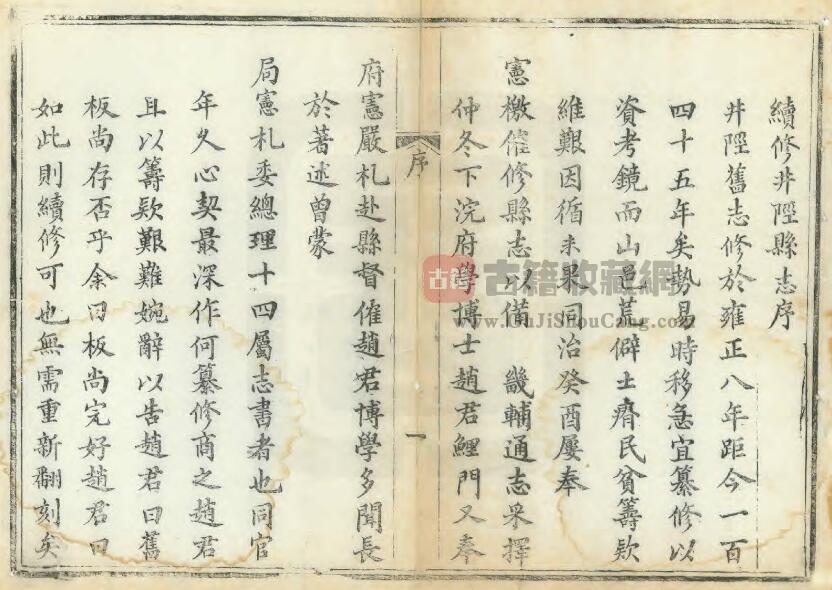 續修井陘縣志序
井陘舊志修於雍正八年距今一百
四十五年矣勢易時移急宜纂修以
資考鏡而山邑荒僻土瘠民貧籌款
維艱因循未果同治癸酉屢奉
憲檄催修縣志以備 畿輔通志采擇
仲冬下浣府學博士趙君鯉門又奉
序
一
府憲嚴札赴縣督催趙君博學多聞長
於著述曾蒙
局憲札委總理十四屬志書者也同官
年久心契最深作何纂修商之趙君
且以籌款艱難婉辭以告趙君曰舊
板尚存否乎余曰板尚完好趙君曰
如此則續修可也無需重新翻刻矣
古籍
古籍收藏網
www.GuJiShouCang.com